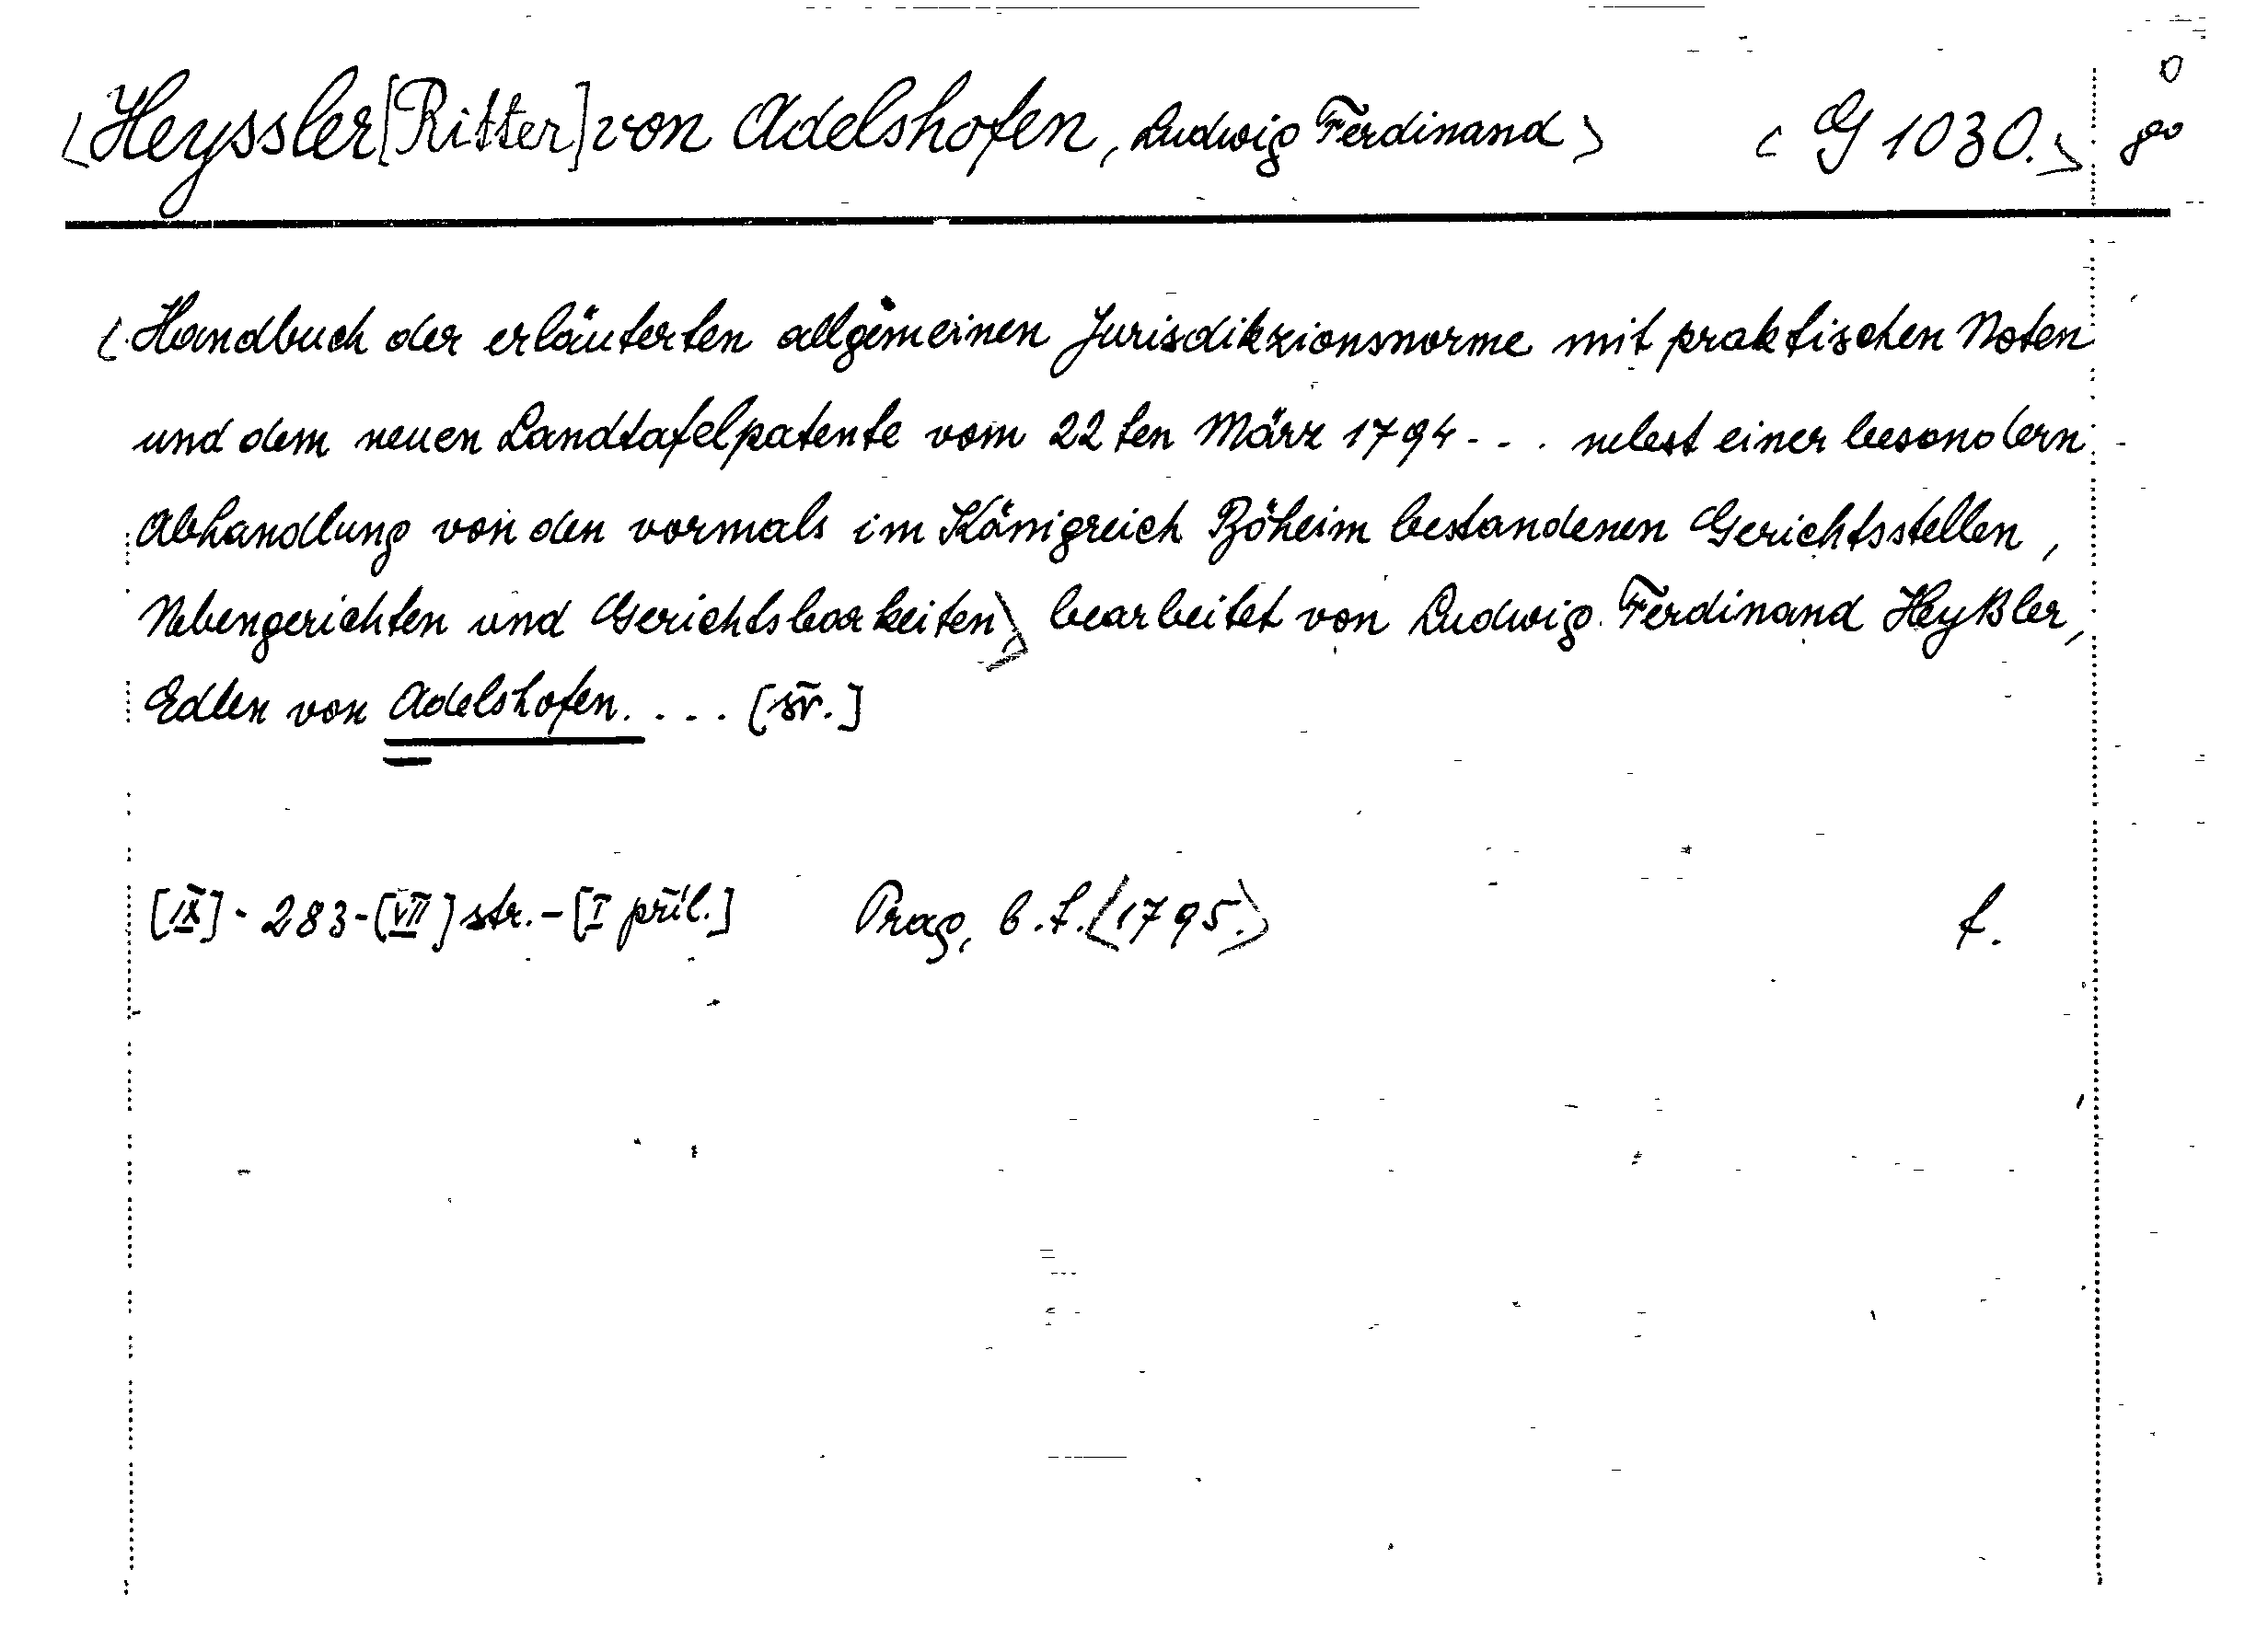 <Heyssler [Ritter] von Adelshofen, Ludwig Ferdinand> <G 1030.>
<Handbuch der erläuterten allgemeinen Jurisdikzionsnorme mit praktischen Noten
und dem neuen Landtafelpatente vom 22ten März 1794 - . . nebst einer besondern
Abhandlung von den vormals im Königreich Böheim bestandenen Gerichtsstellen,
Nebengerichten und Gerichtsbarkeiten> bearbeitet von Ludwig Ferdinand Heyßler,
Edlen von Adelshofen. . . . [šv.]
[IX] - 283 - [VII] str. - [I příl.] Prag, b. t. <1795.> f.